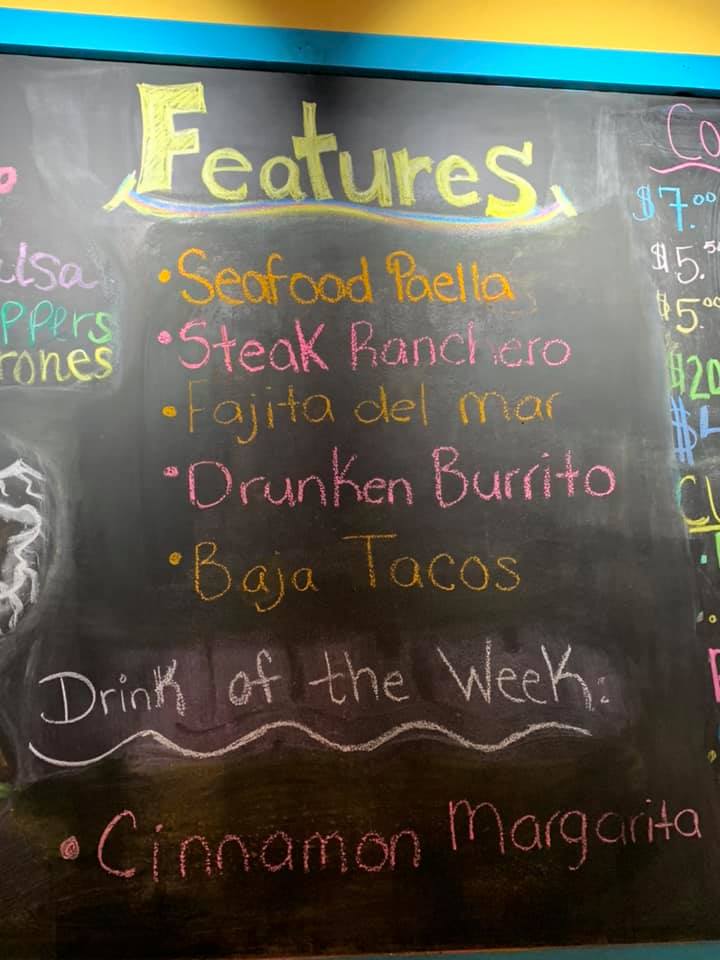 Features
• Seafood Paella
• Steak Ranchero
• Fajita del mar
• Drunken Burrito
• Baja Tacos
Drink of the Week:
• Cinnamon Margarita
$7.00
$5.5
$5.00
$20